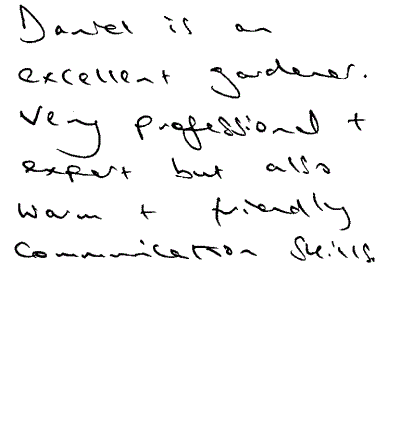 Daniel is an
excellent gardener.
Very professional +
expert but also
warm + friendly
communication skills.